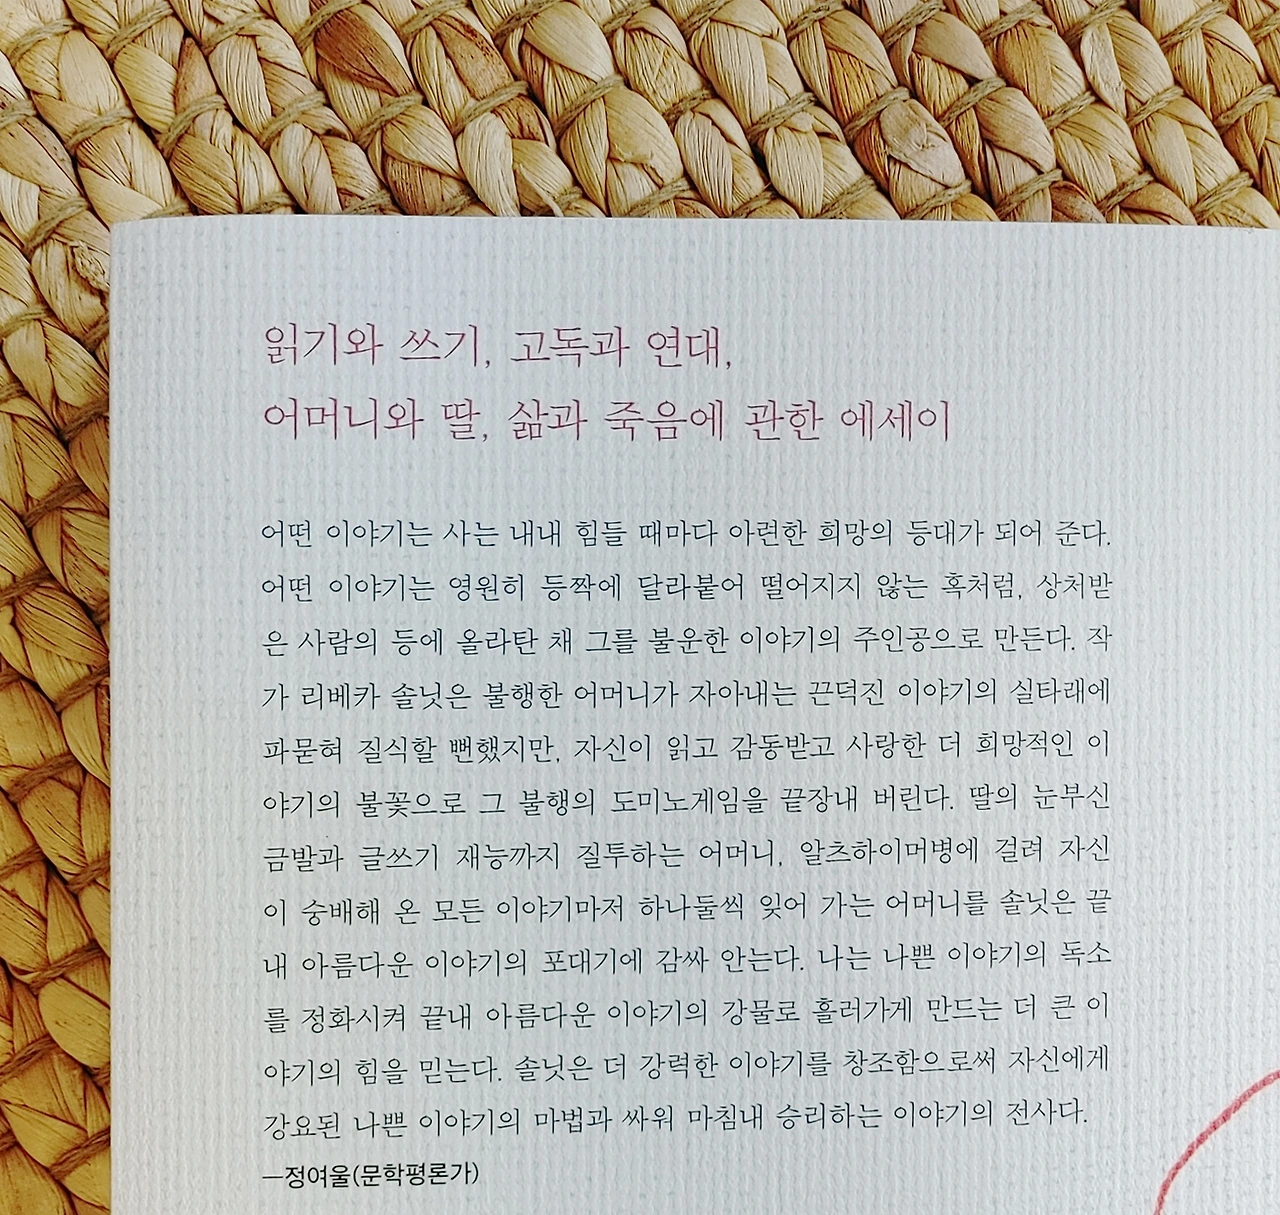 읽기와 쓰기, 고독과 연대,
어머니와 딸, 삶과 죽음에 관한 에세이
어떤 이야기는 사는 내내 힘들 때마다 아련한 희망의 등대가 되어 준다.
어떤 이야기는 영원히 등짝에 달라붙어 떨어지지 않는 혹처럼, 상처받
은 사람의 등에 올라탄 채 그를 불운한 이야기의 주인공으로 만든다. 작
가 리베카 솔닛은 불행한 어머니가 자아내는 끈덕진 이야기의 실타래에
파묻혀 질식할 뻔했지만, 자신이 읽고 감동받고 사랑한 더 희망적인 이
야기의 불꽃으로 그 불행의 도미노게임을 끝장내 버린다. 딸의 눈부신
금발과 글쓰기 재능까지 질투하는 어머니, 알츠하이머병에 걸려 자신
이 숭배해 온 모든 이야기마저 하나둘씩 잊어 가는 어머니를 솔닛은 끝
내 아름다운 이야기의 포대기에 감싸 안는다. 나는 나쁜 이야기의 독소
를 정화시켜 끝내 아름다운 이야기의 강물로 흘러가게 만드는 더 큰 이
야기의 힘을 믿는다. 솔닛은 더 강력한 이야기를 창조함으로써 자신에게
강요된 나쁜 이야기의 마법과 싸워 마침내 승리하는 이야기의 전사다.
—정여울(문학평론가)